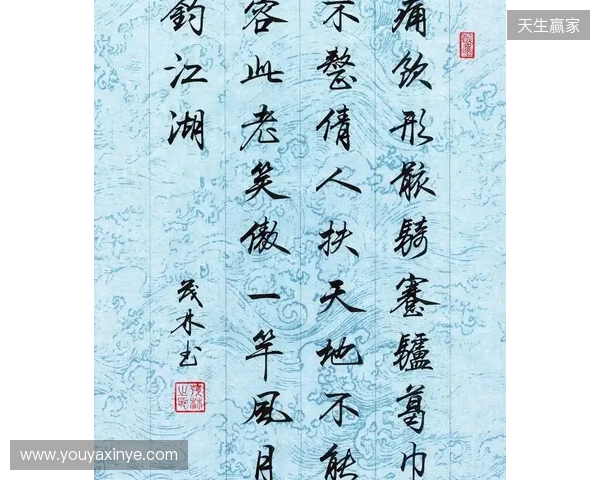 天生赢家
痛飲形骸騎蹇驢葛巾
不整倩人扶天地不能
容此老笑傲一竿風月
釣江湖
茂林书
www.youyaxinye.com